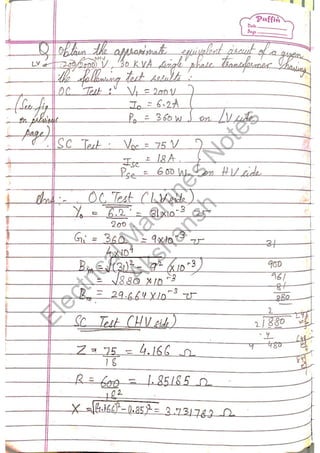 Puffin
Date
Page
Q Obtain the approximate equivalent circuit of a given
LV ← 200/2000 V, 30 KVA single phase transformer having
the following test results :
OC Test : V₁ = 200V
I₀ = 6.2A
P₀ = 360W } on LV side
(See fig
on previous
page)
SC Test : Voc = 75 V
Isc = 18A.
Psc = 600W } on HV side
Ans :- OC Test (LV side)
Y₀ = 6.2 = 31x10⁻³ ʊ
200
Gi = 360 = 9x10⁻³ ʊ
4x10⁴
Bm = √(31)² - 9² (x10⁻³)
= √880 x10⁻³
Bm = 29.664 x10⁻³ ʊ
SC Test (HV side)
Z = 75 = 4.166 Ω
18
R = 600 = 1.85185 Ω
18²
X = √(4.166)² - (1.85)² = 3.731783 Ω
31
900
961
81
880
2
2 √880
4
4 480
Electrical Machines Notes